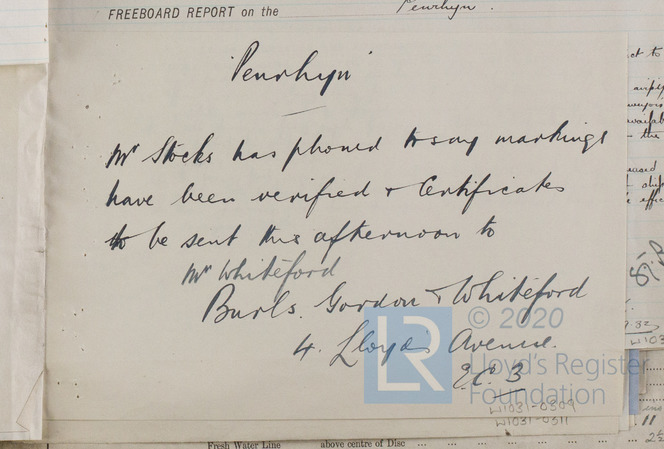 FREEBOARD REPORT on the
Penrhyn.
'Penrhyn'
Mr Stocks has phoned to say markings
have been verified & Certificates
to be sent this afternoon to
Mr Whiteford
Burls. Gordon & Whiteford
4. Lloyd's Avenue.
E.C. 3
LR
© 2020
Lloyd's Register
Foundation
W1031-0309
W1031-0311
Fresh Water Line above centre of Disc ... ... ... ... ...